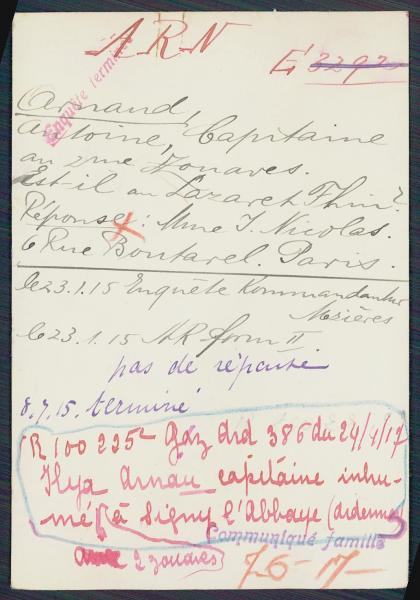 ARN
É 3292
Enquête terminée
Arnaud,
Antoine, Capitaine
au 2me Zouaves.
Est-il au Lazaret Thin?
Réponse: Mme J. Nicolas.
6 Rue Boutarel. Paris.
le 23.1.15 Enquête Kommandantur
Mézières
le 23.1.15 AR form II
pas de réponse
8.7.15. terminé
R 100 225² Gaz Ard 386 du 24/4/17
Ilya Arnau capitaine inhu-
mé à Signy l'Abbaye (Ardennes)
Communiqué famille
2 zouaves
7-6-17-